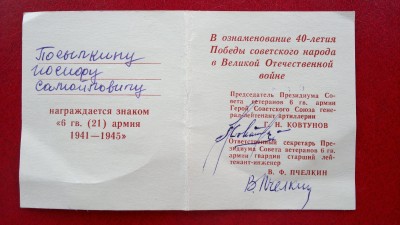 Посылкину
Иосифу
Самойловичу
награждается знаком
«6 гв. (21) армия
1941—1945»
В ознаменование 40-летия
Победы советского народа
в Великой Отечественной
войне
Председатель Президиума Со-
вета ветеранов 6 гв. армии
Герой Советского Союза гене-
рал-лейтенант артиллерии
Г. Н. КОВТУНОВ
Ответственный секретарь Пре-
зидиума Совета ветеранов 6 гв.
армии гвардии старший лей-
тенант-инженер
В. Ф. ПЧЕЛКИН
В.Пчелкин